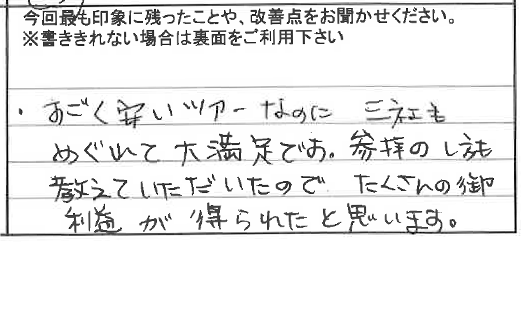 今回最も印象に残ったことや、改善点をお聞かせください。
※書ききれない場合は裏面をご利用下さい
・すごく安いツアーなのに 三社も
めぐれて大満足です。参拝のし方も
教えていただいたので たくさんの御
利益が得られたと思います。